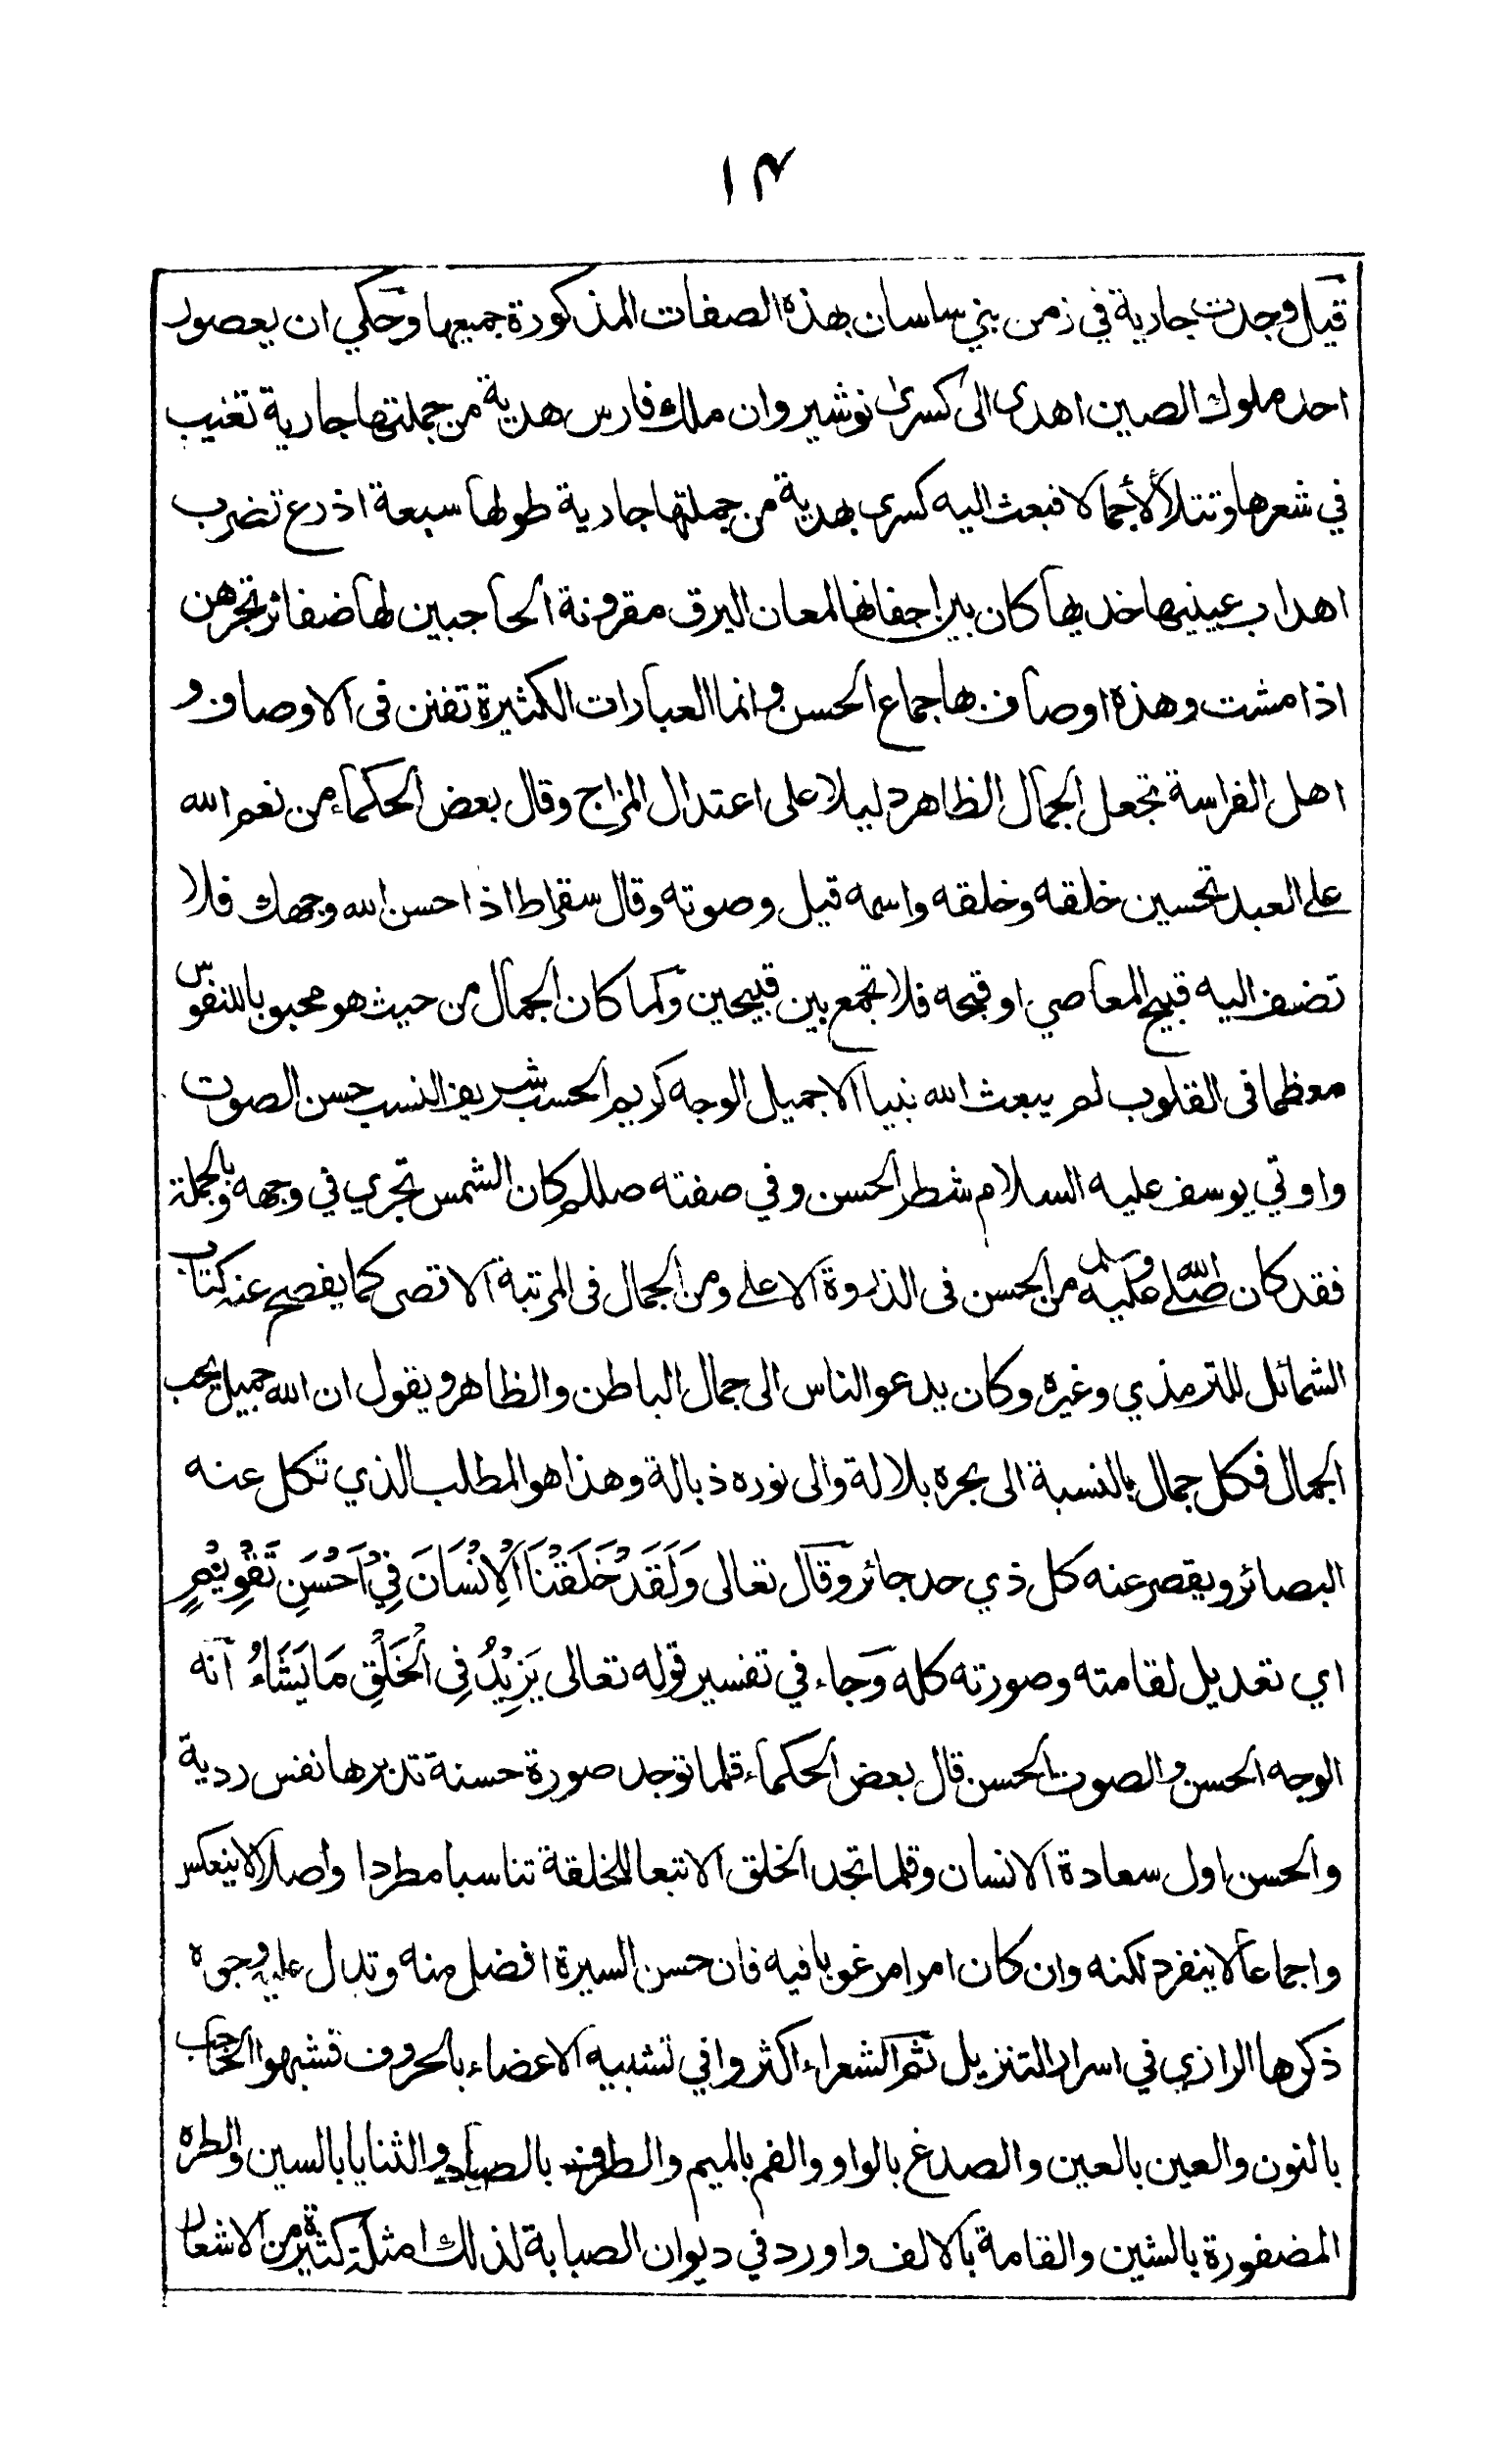 ١٣
قيل وجدت جارية في زمن بني ساسان بهذه الصفات المذكورة جميعها وحكي ان يعصور
احد ملوك الصين اهدى الى كسرى نوشيروان ملك فارس هدية من جملتها جارية تغيب
في شعرها وتتلألأ جمالا فبعث اليه كسرى بهدية من جملتها جارية طولها سبعة اذرع تضرب
اهداب عينيها خديها كان بين اجفانها لمعان البرق مقرونة الحاجبين لها ضفائر تجرهن
اذا مشت وهذه اوصاف ها جماع الحسن وانما العبارات الكثيرة تفنن في الاوصاف و
اهل الفراسة تجعل الجمال الظاهر دليلا على اعتدال المزاج وقال بعض الحكماء من نعم الله
على العبد تحسين خلقه وخلقه واسمه قيل وصوته وقال سقراط اذا حسن الله وجهك فلا
تضف اليه قبيح المعاصي او قبحه فلا تجمع بين قبيحين وكما كان الجمال من حيث هو محبوبا للنفوس
معظما في القلوب لم يبعث الله نبيا الا جميل الوجه كريم الحسب شريف النسب حسن الصوت
واوتي يوسف عليه السلام شطر الحسن وفي صفته صللم كان الشمس تجري في وجهه وبالجملة
فقد كان صلى الله عليه وسلم من الحسن في الذروة الاعلى ومن الجمال في المرتبة الاقصى كما يفصح عنه كتاب
الشمائل للترمذي وغيره وكان يدعو الناس الى جمال الباطن والظاهر ويقول ان الله جميل يحب
الجمال فكل جمال بالنسبة الى بحره بلالة والى نوره ذبالة وهذا هو المطلب الذي تكل عنه
البصائر ويقصر عنه كل ذي حد جائر وقال تعالى وَلَقَدْ خَلَقْنَا الْاِنْسَانَ فِيْ اَحْسَنِ تَقْوِيْمٍ
اي تعديل لقامته وصورته كله وجاء في تفسير قوله تعالى يَزِيْدُ فِى الْخَلْقِ مَا يَشَاءُ انه
الوجه الحسن والصوت الحسن قال بعض الحكماء قلما توجد صورة حسنة تدبرها نفس ردية
والحسن اول سعادة الانسان وقلما تجد الخلق الا تبعا للخلقة تناسبا مطردا واصلا لا ينعكس
واجماعاً لا ينفرد لكنه وان كان امرا مرغوبا فيه فان حسن السيرة افضل منه وتدل عليه وجوه
ذكرها الرازي في اسرار التنزيل ثم الشعراء اكثروا في تشبيه الاعضاء بالحروف فشبهوا الحاجب
بالنون والعين بالعين والصدغ بالواو والفم بالميم والطرف بالصاد والثنايا بالسين والطره
المضفورة بالشين والقامة بالالف واورد في ديوان الصبابة لذلك امثلة كثيرة من الاشعار